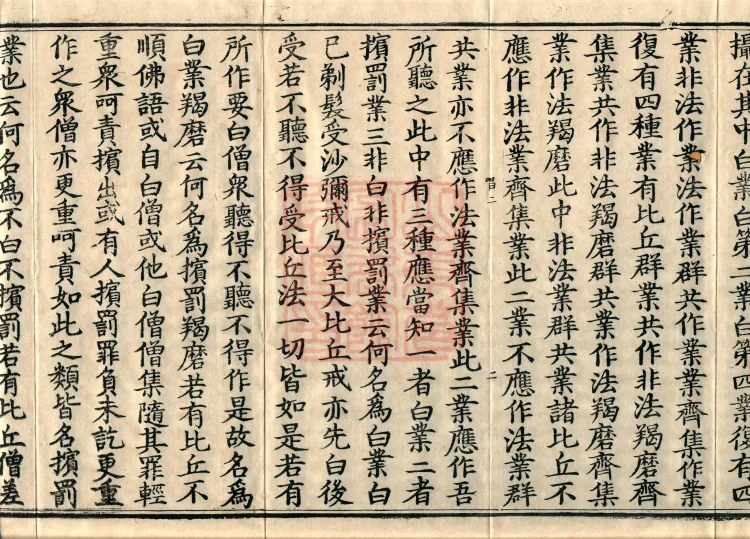 攝在其中白業白第二業白第四業復有四
業非法作業法作業群共作業齊集作業
復有四種業有比丘群業共作非法羯磨齊
集業共作非法羯磨群共業作法羯磨齊集
業作法羯磨此中非法業群共業諸比丘不
應作非法業齊集業此二業不應作法業群
共業亦不應作法業齊集業此二業應作吾
所聽之此中有三種應當知一者白業二者
擯罰業三非白非擯罰業云何名為白業白
已剃髮受沙彌戒乃至大比丘戒亦先白後
受若不聽不得受比丘法一切皆如是若有
所作要白僧衆聽得不聽不得作是故名為
白業羯磨云何名為擯罰羯磨若有比丘不
順佛語或自白僧或他白僧僧集隨其罪輕
重衆呵責擯出或有人擯罰罪負未訖更重
作之衆僧亦更重呵責如此之類皆名擯罰
業也云何名爲不白不擯罰若有比丘僧差